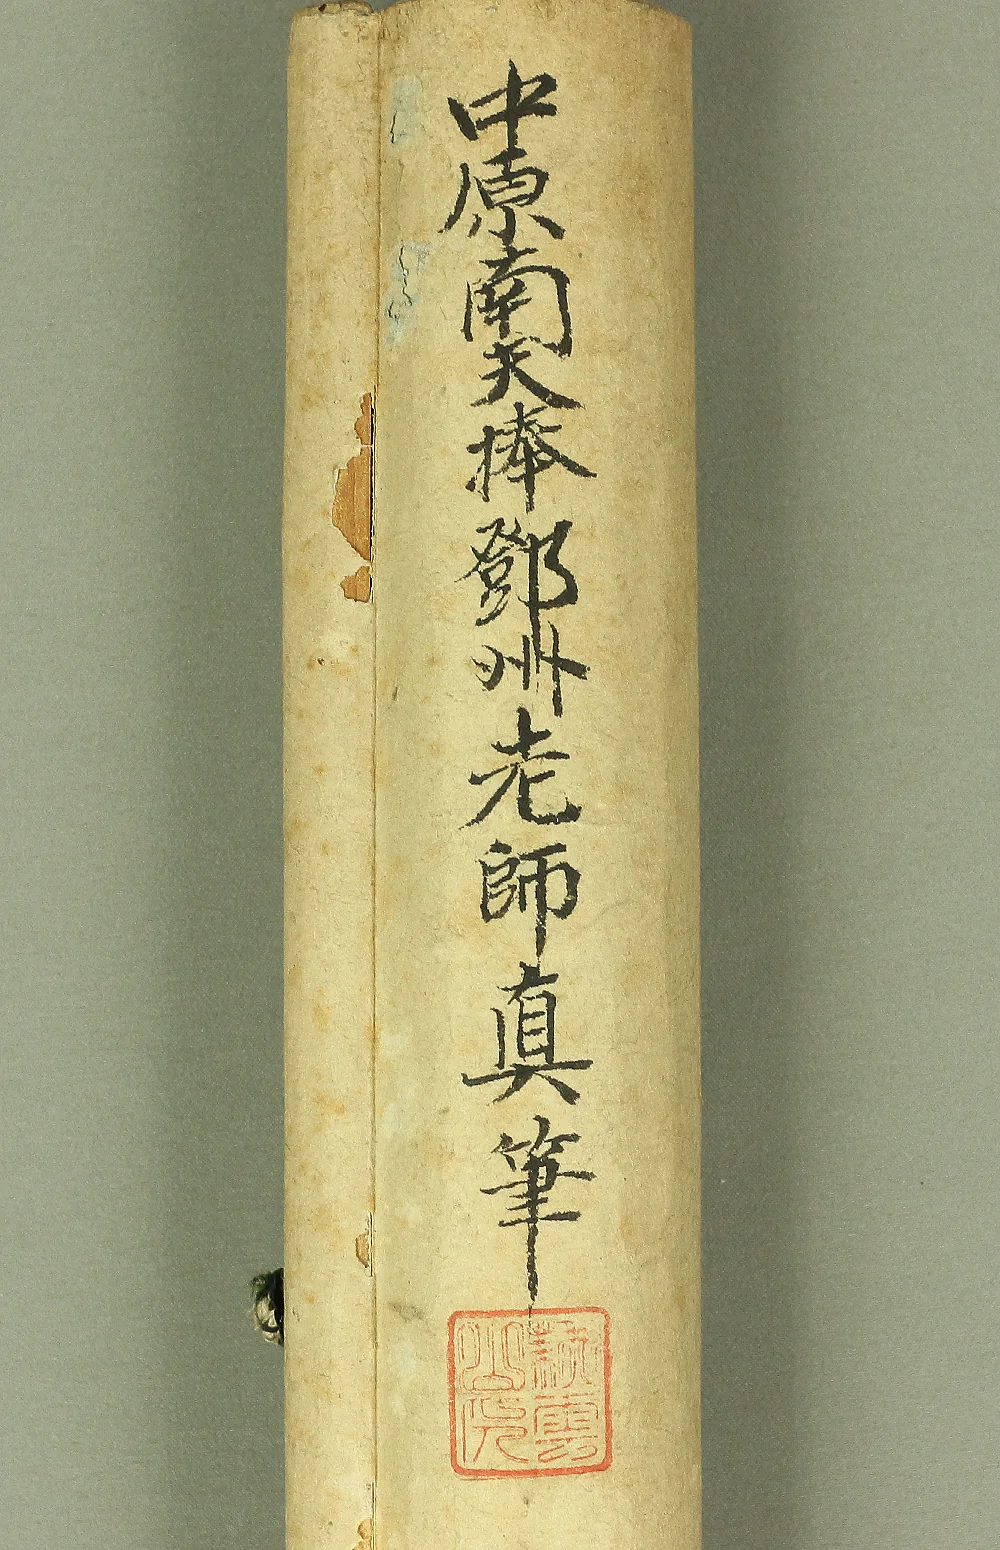 中原南天捧鄧州老師真筆